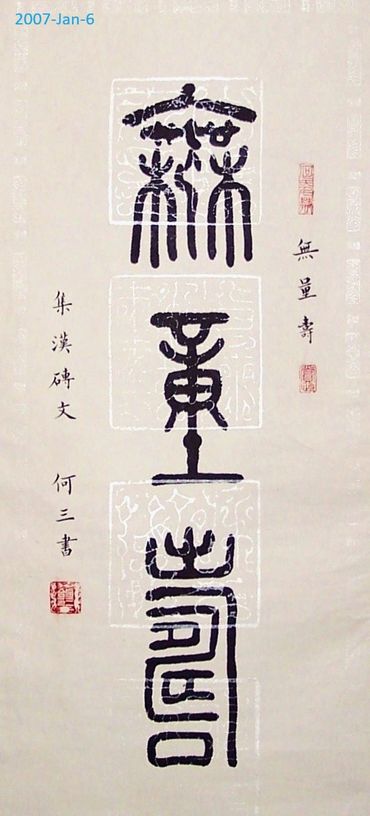 2007-Jan-6
無量壽
無量壽
集漢磚文 何三書